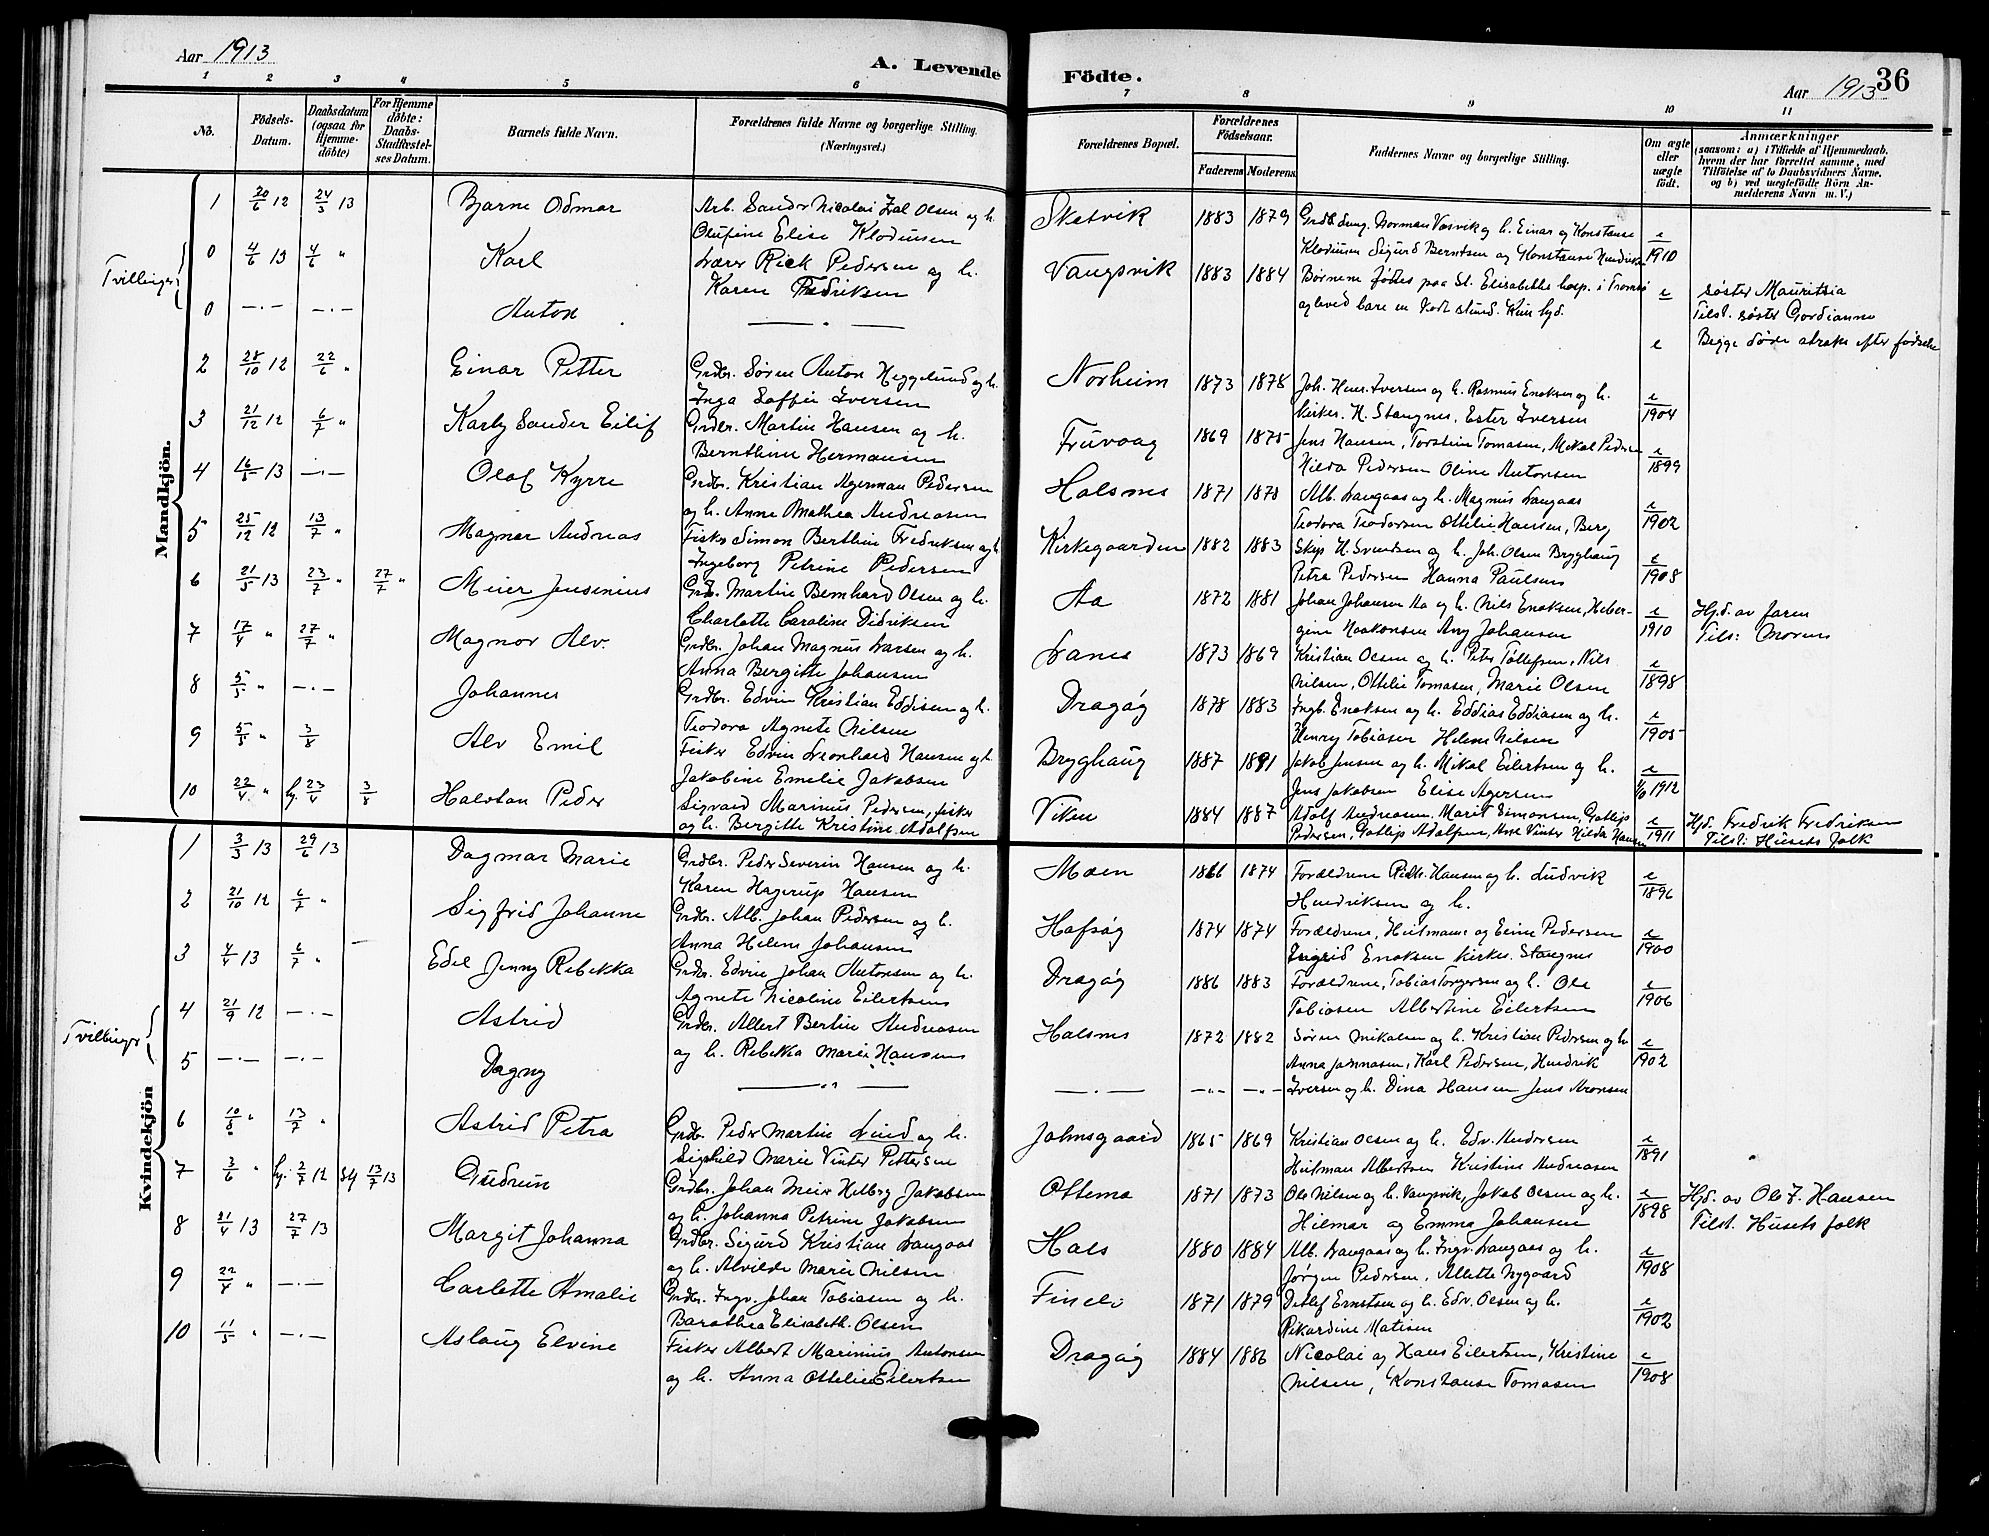 Aar 1913
A. Levende
Födte.
Aar 1913
36
1 2 3 4 5 6 7 8 9 10 11
No.
Födsels-
Datum.
Daabsdatum
(ogsaa for
Hjemme-
döbte)
For Hjemme
döbte:
Daabs-
Stadfæstel-
ses Datum.
Barnets fulde Navn.
Forældrenes fulde Navne og borgerlige Stilling.
(Næringsvei.)
Forældrenes Bopæl.
Forældrenes
Födselsaar.
Faderens Moderens
Faddernes Navne og borgerlige Stilling.
Om ægte
eller
uægte
födt.
Anmærkninger
(saasom: a) i Tilfælde af Hjemmedaab,
hvem der har forrettet samme, med
Tilföielse af to Daabsvidners Navne,
og b) ved uægtefödte Börn An-
melderens Navn m. V.)
Mandkjön.
1 20/6 12 24/3 13 Bjarne Odmar
Arb. Sander Nicolai Zal Olsen og h.
Olufine Elise Klodiusen
Skatvik 1883 1879
Klodiusen Sigurd Berntsen og Konstanse Hendriksen
e/1910
Tvillinger
0 4/6 13 4/6 " Karl
Lærer Rick Pedersen og h.
Karen Fredriksen
Vangsvik 1883 1884 Børnene fødtes paa St. Elisabeths hosp. i Tromsø
og leved bare en kort stund.
e
søster Mauritzia
Tilst. søster Gordianna
0 —.— —.— Anton — " —
e Begge døde straks efter fødselen
2 28/10 12 22/6 " Einar Petter
Grdbr. Søren Anton Heggelund og h.
Inga Soffie Iversen
Norheim 1873 1878 Joh. Henr. Iversen og h. Rasmus Enoksen og h.
Kirkes. H. Stangnes, Ester Iversen
e/1904
3 21/12 12 6/7 " Karly Sander Eilif
Grdbr. Martin Hansen og h.
Bernthine Hermansen
Fruvaag 1869 1875 Jens Hansen, Torstein Tomasen, Mikal Pedersen
Hilda Pedersen Oline Antonsen
e/1899
4 16/5 13 —.— Olaf Kyrre
Grdbr. Kristian Agerman Pedersen
og h. Anne Mathea Andreasen
Halsnes 1871 1878 Alb. Langaas og h. Magnus Langaas
Teodora Teodorsen Ottilie Hansen, Berg
e/1902
5 25/12 12 13/7 " Magnar Andreas
Fisker Simon Berthin Fredriksen og h.
Ingeborg Petrine Pedersen
Kirkegaarden 1882 1883 Skip. H. Svendsen og h. Joh. Olsen Brygghaug
Petra Pedersen Hanna Paulsen
e/1908
6 21/5 13 23/7 " 27/7 " Meier Jensinius
Grdb. Martin Bernhard Olsen og h.
Charlotte Caroline Didriksen
Aa 1872 1881 Johan Johansen Aa og h. Nils Enoksen, Heber-
gine Haakonsen Any Johansen
e/1910
Hjd. av faren
Tils: Moren
7 17/4 " 27/7 " Magnor Alv.
Grdbr. Johan Magnus Larsen og h.
Anna Bergitte Johansen
Lanes 1873 1869 Kristian Olsen og h. Peter Tollefsen, Nils
Nilsen, Ottilie Tomasen, Marie Olsen
e/1898
8 5/5 " —.— Johannes
Grdbr. Edvin Kristian Eddisen og h.
Teodora Agnete Nilsen
Dragøy 1878 1883 Ingb. Enoksen og h. Eddias Eddiasen og h.
Henry Tobiasen Helene Nilsen
e/1905
9 5/5 " 3/8 Alv Emil
Fisker Edvin Leonhard Hansen og h.
Jakobine Emelie Jakobsen
Brygghaug 1887 1891 Jakob Jensen og h. Mikal Eilertsen og h.
Jens Jakobsen Elise Agersen
e/1912
10 22/4 " hj. 23/4 3/8 Halvtan Peder
Sigvard Marinius Pedersen, fisker
og h. Bergitte Kristine Adolfsen
Viken 1884 1887 Adolf Andreasen, Marit Simonsen, Gottlip
Pedersen, Gotlip Adolfsen, Ane Vinter Hilda Hansen
e/1911
Hjd. Fredrik Fredriksen
Tilst: Husets folk
Kvindekjön
1 3/3 13 29/6 13 Dagmar Marie
Grdbr. Peder Severin Hansen og h.
Karen Hagerup Hansen
Moen 1866 1874 Forældrene Hansen og h. Ludvik
Hendriksen og h.
e/1896
2 21/10 12 6/7 " Sigfrid Johanne
Grdbr. Alb. Johan Pedersen og h.
Anna Helene Johansen
Hafsøy 1874 1874 Forældrene, Hilmans og Eine Pedersen
Ingrid Enoksen Kirkes. Stangnes
e/1900
3 4/4 13 6/7 " — Edel Jenny Rebekka
Grdbr. Edvin Johan Antonsen og h.
Agnete Nicoline Eilertsen
Dragøy 1886 1883 Forældrene, Tobias Torgersen og h. Ole
Tobiasen Albertine Eilertsen
e/1906
Tvillinger
4 21/9 12 —.— Astrid
Grdbr. Albert Bertin Andreasen
og h. Rebekka Marie Hansen
Halsnes 1872 1882 Søren Mikalsen og h. Kristian Pedersen og h
Anna Johnasen, Karl Pedersen, Hendrik
e/1902
5 —.— —.— Dagny — " —
—.— —"— —"— Iversen og h. Dina Hansen Jens Aronsen
6 10/8 " 13/7 " Astrid Petra
Grdb. Peder Martin Lind og h.
Sighild Marie Vinter Pettersen
Johnsgaard 1865 1869 Kristian Olsen og h. Edv. Andersen
Hilman Albertsen Kristine Andreasen
e/1891
7 3/6 " hj. 2/7 12 St 13/7 13 Gudrun
Grdbr. Johan Meier Helberg Jakobsen
og h. Johanna Petrine Jakobsen
Ottemo 1871 1873 Ole Nilsen og h. Vangsvik, Jakob Olsen og h.
Hilmar og Emma Johansen
e/1898
Hjd. av Ole J. Hansen
Tilst. Husets folk
8 21/4 13 27/7 13 Margit Johanna
Grdbr. Sigurd Kristian Langaas
og h. Alvilde Marie Nilsen
Hals 1880 1884 Alb. Langaas og h. Ingv. Langaas og h.
Jørgen Pedersen, Allette Nygaard
e/1908
9 22/4 " —.— Carlotte Amalie
Grdbr. Ingv. Johan Tobiasen og h.
Barathea Elisabeth Olsen
Finelv 1871 1879 Detlef Ernstsen og h. Edv. Olsen og h.
Rikardine Matisen
e/1902
10 11/5 " —.— Aslaug Elvine
Fisker Albert Marinius Antonsen
og h. Anna Ottilie Eilertsen
Dragøy 1884 1886 Nicolai og Hans Eilertsen, Kristine
Nilsen, Konstanse Tomasen
e/1908